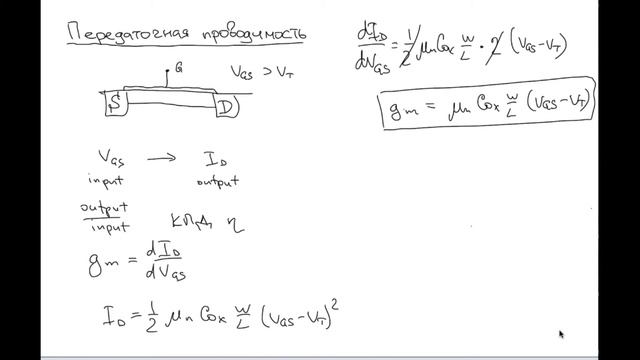 Передаточная проводимость
G
V_GS > V_T
S D
V_GS → I_D
input output
output / input К.П.Д. η
g_m = dI_D / dV_GS
I_D = 1/2 μ_n C_ox W/L (V_GS − V_T)^2
dI_D / dV_GS = 1/2 μ_n C_ox W/L · 2 (V_GS − V_T)
g_m = μ_n C_ox W/L (V_GS − V_T)